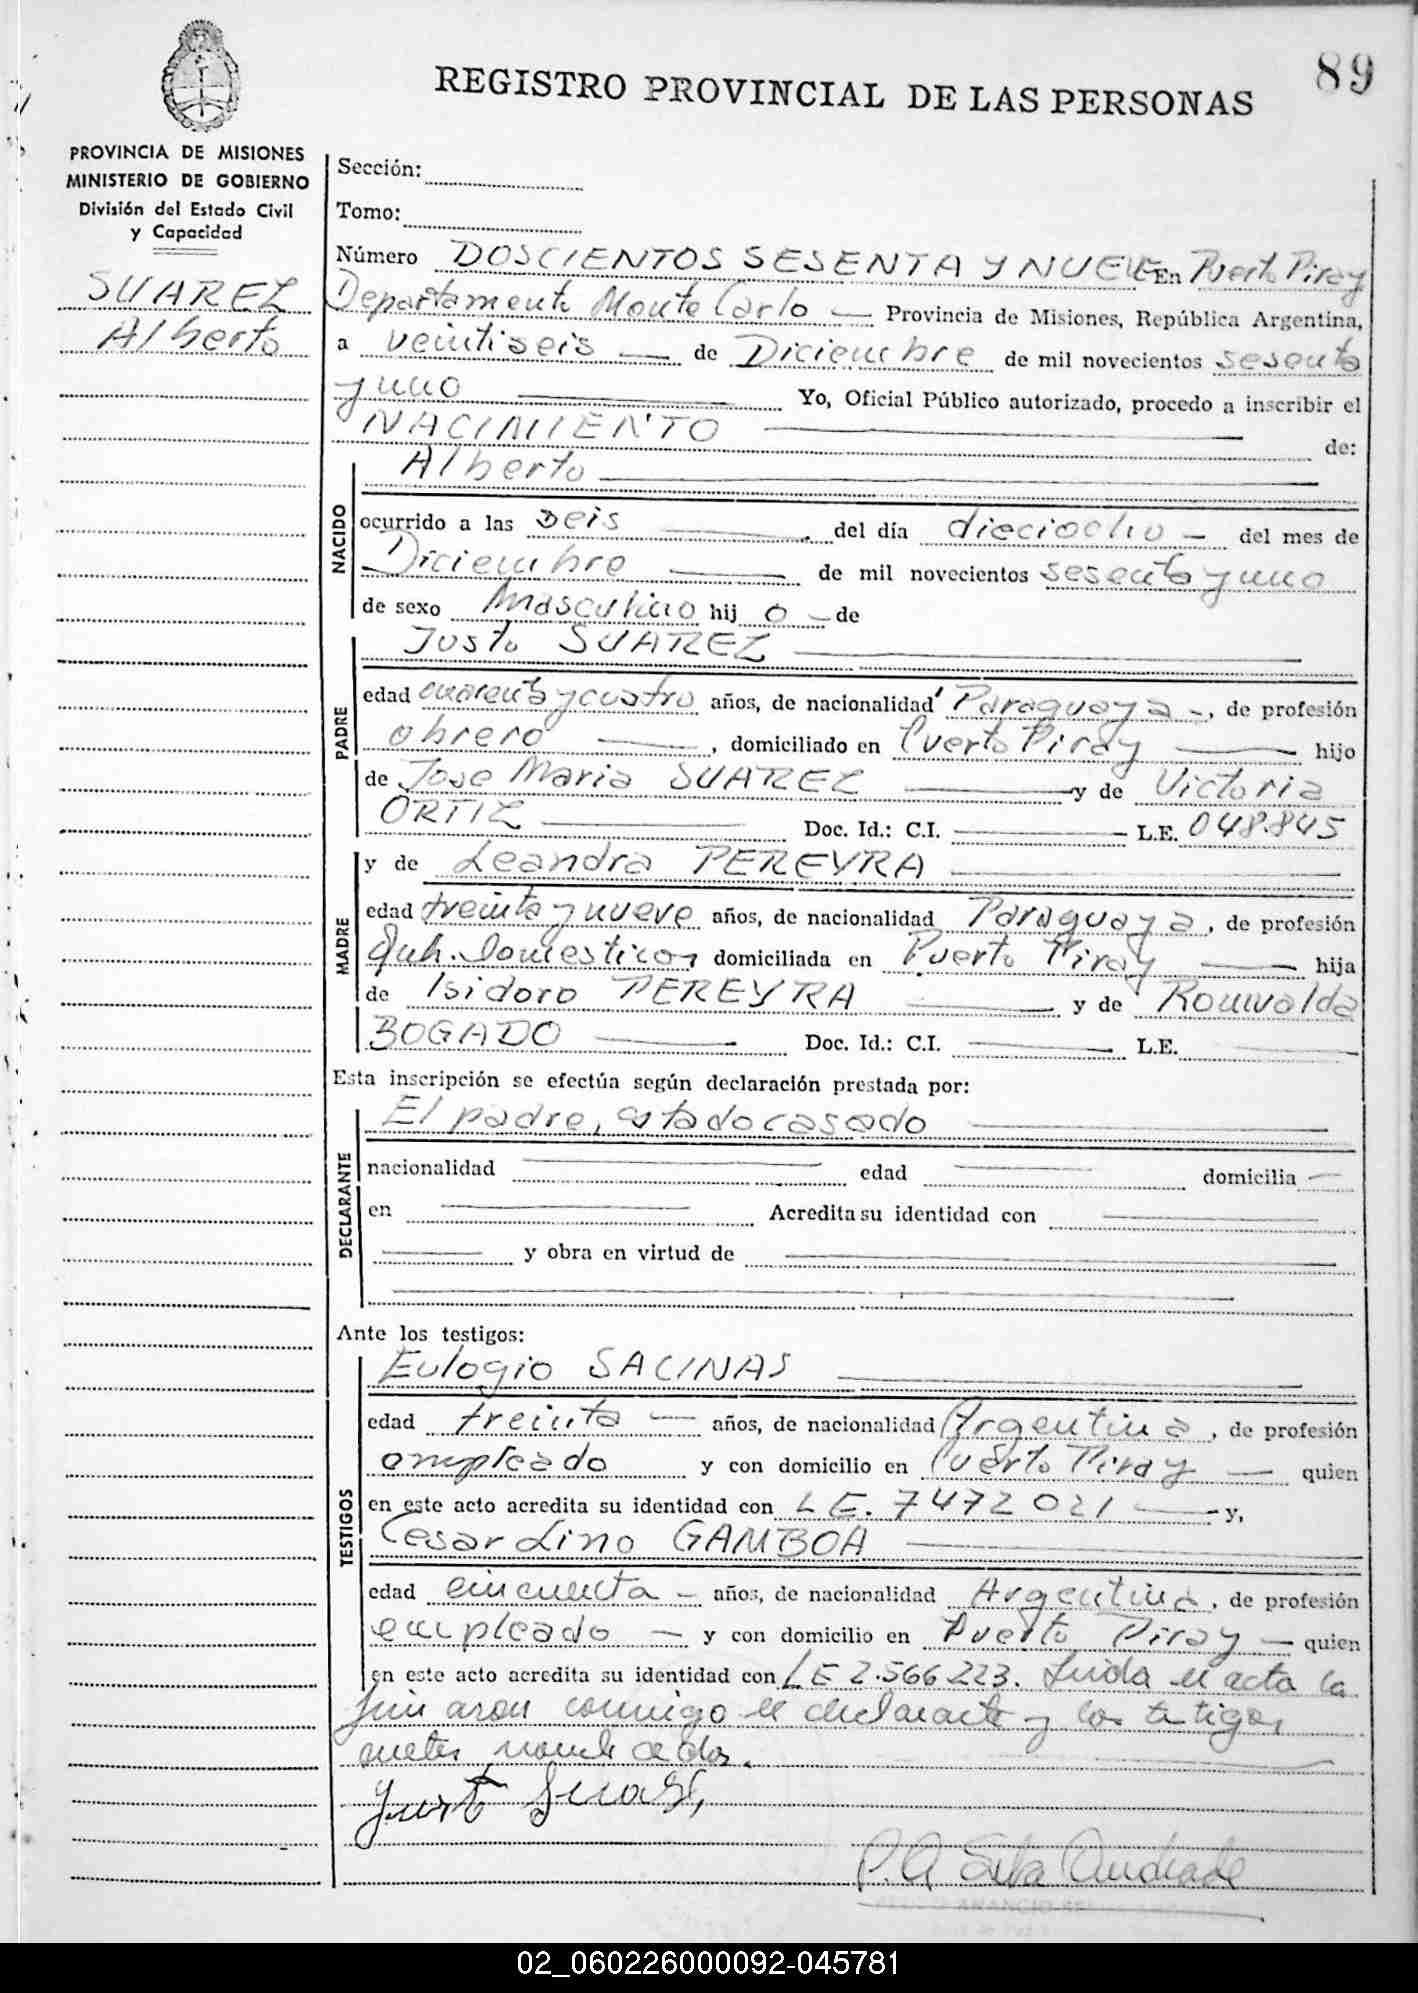 89
REGISTRO PROVINCIAL DE LAS PERSONAS
PROVINCIA DE MISIONES
MINISTERIO DE GOBIERNO
División del Estado Civil
y Capacidad
SUAREZ
Alberto
Sección:
Tomo:
Número DOSCIENTOS SESENTA Y NUEVE En Puerto Piray
Departamento Monte Carlo — Provincia de Misiones, República Argentina,
a veintiseis — de Diciembre de mil novecientos sesenta
y uno — Yo, Oficial Público autorizado, procedo a inscribir el
NACIMIENTO — de:
NACIDO
Alberto —
ocurrido a las seis — del día dieciocho — del mes de
Diciembre — de mil novecientos sesenta y uno
de sexo Masculino hij o — de
PADRE
Justo SUAREZ —
edad cuarenta y cuatro años, de nacionalidad Paraguaya -, de profesión
obrero —, domiciliado en Puerto Piray — hijo
de Jose Maria SUAREZ — y de Victoria
ORTIZ — Doc. Id.: C.I. — L.E. 048.845
MADRE
y de Leandra PEREYRA —
edad treinta y nueve años, de nacionalidad Paraguaya, de profesión
Quh. Domesticos, domiciliada en Puerto Piray — hija
de Isidoro PEREYRA — y de Romualda
BOGADO — Doc. Id.: C.I. — L.E. —
Esta inscripción se efectúa según declaración prestada por:
DECLARANTE
El padre, estado casado —
nacionalidad — edad — domicilia —
en — Acredita su identidad con —
— y obra en virtud de —
Ante los testigos:
TESTIGOS
Eulogio SACINAS —
edad treinta — años, de nacionalidad Argentina, de profesión
empleado y con domicilio en Puerto Piray — quien
en este acto acredita su identidad con L E. 7472021 — y,
Cesar Lino GAMBOA —
edad cincuenta — años, de nacionalidad Argentina, de profesión
empleado — y con domicilio en Puerto Piray — quien
en este acto acredita su identidad con L E 2.566223. Leida el acta la
firmaron conmigo el declarante y los testigos
antes nombrados.
Justo Suarez
P.A Silva Andrade
02_060226000092-045781